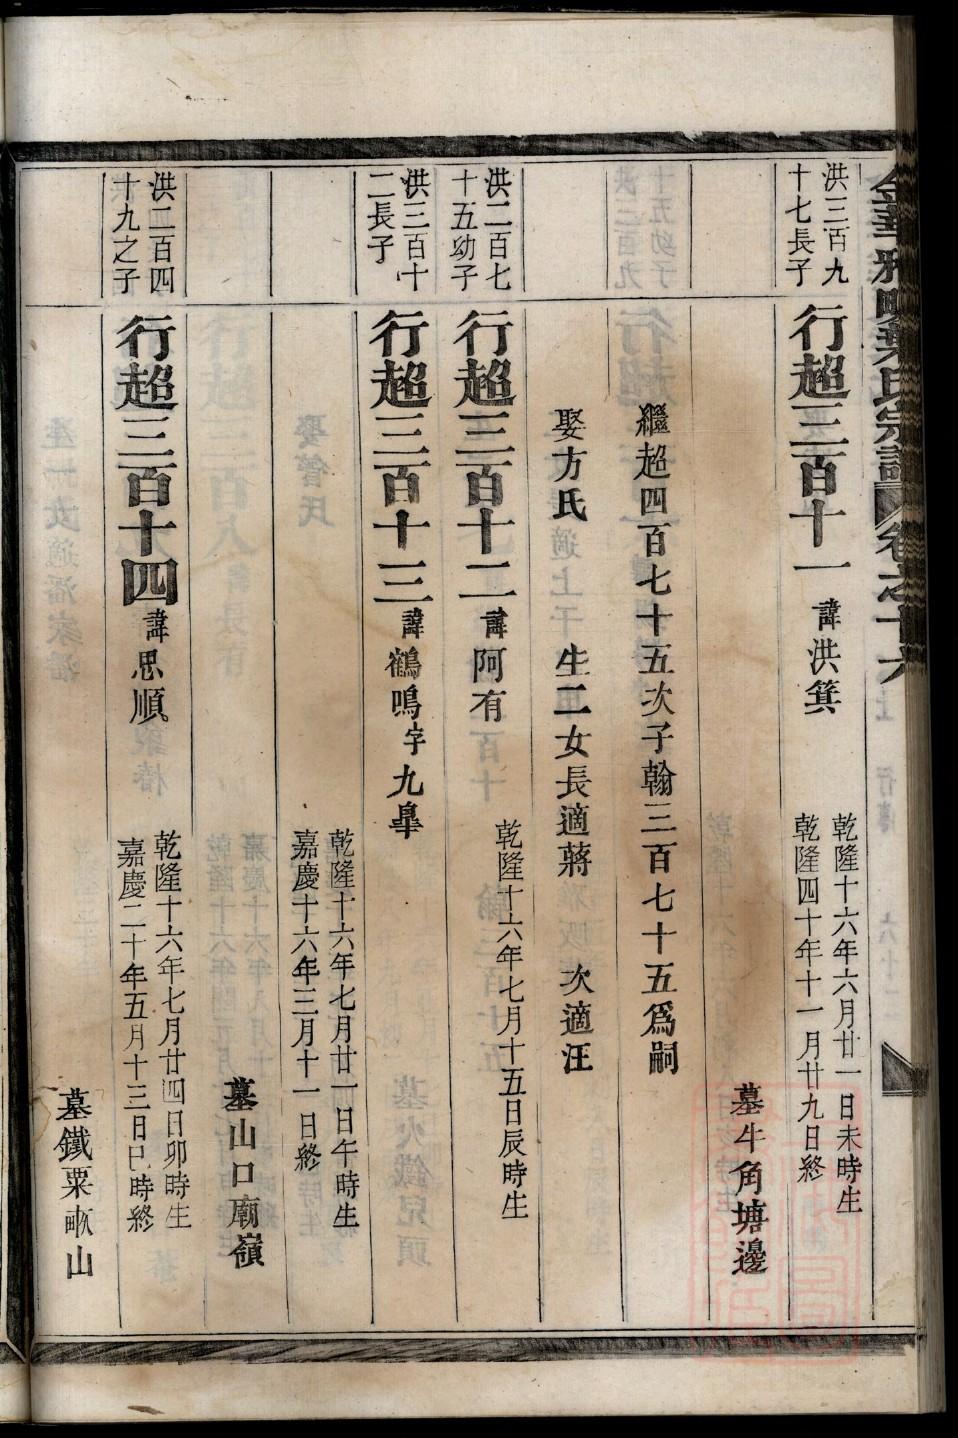 金華雅畈葉氏宗譜 卷之十六
洪三百九
十七長子
行超三百十一 諱洪箕
乾隆十六年六月廿一日未時生
乾隆四十年十一月廿九日終
墓牛角塘邊
繼超四百七十五次子翰三百七十五爲嗣
娶方氏 生二女長適蔣 次適汪
洪二百七
十五幼子
行超三百十二 諱阿有
乾隆十六年七月十五日辰時生
洪三百十
二長子
行超三百十三 諱鶴鳴字九臯
乾隆十六年七月廿一日午時生
嘉慶十六年三月十一日終
墓山口廟嶺
洪二百四
十九之子
行超三百十四 諱思順
乾隆十六年七月廿四日卯時生
嘉慶二十年五月十三日巳時終
墓鐵粟畝山